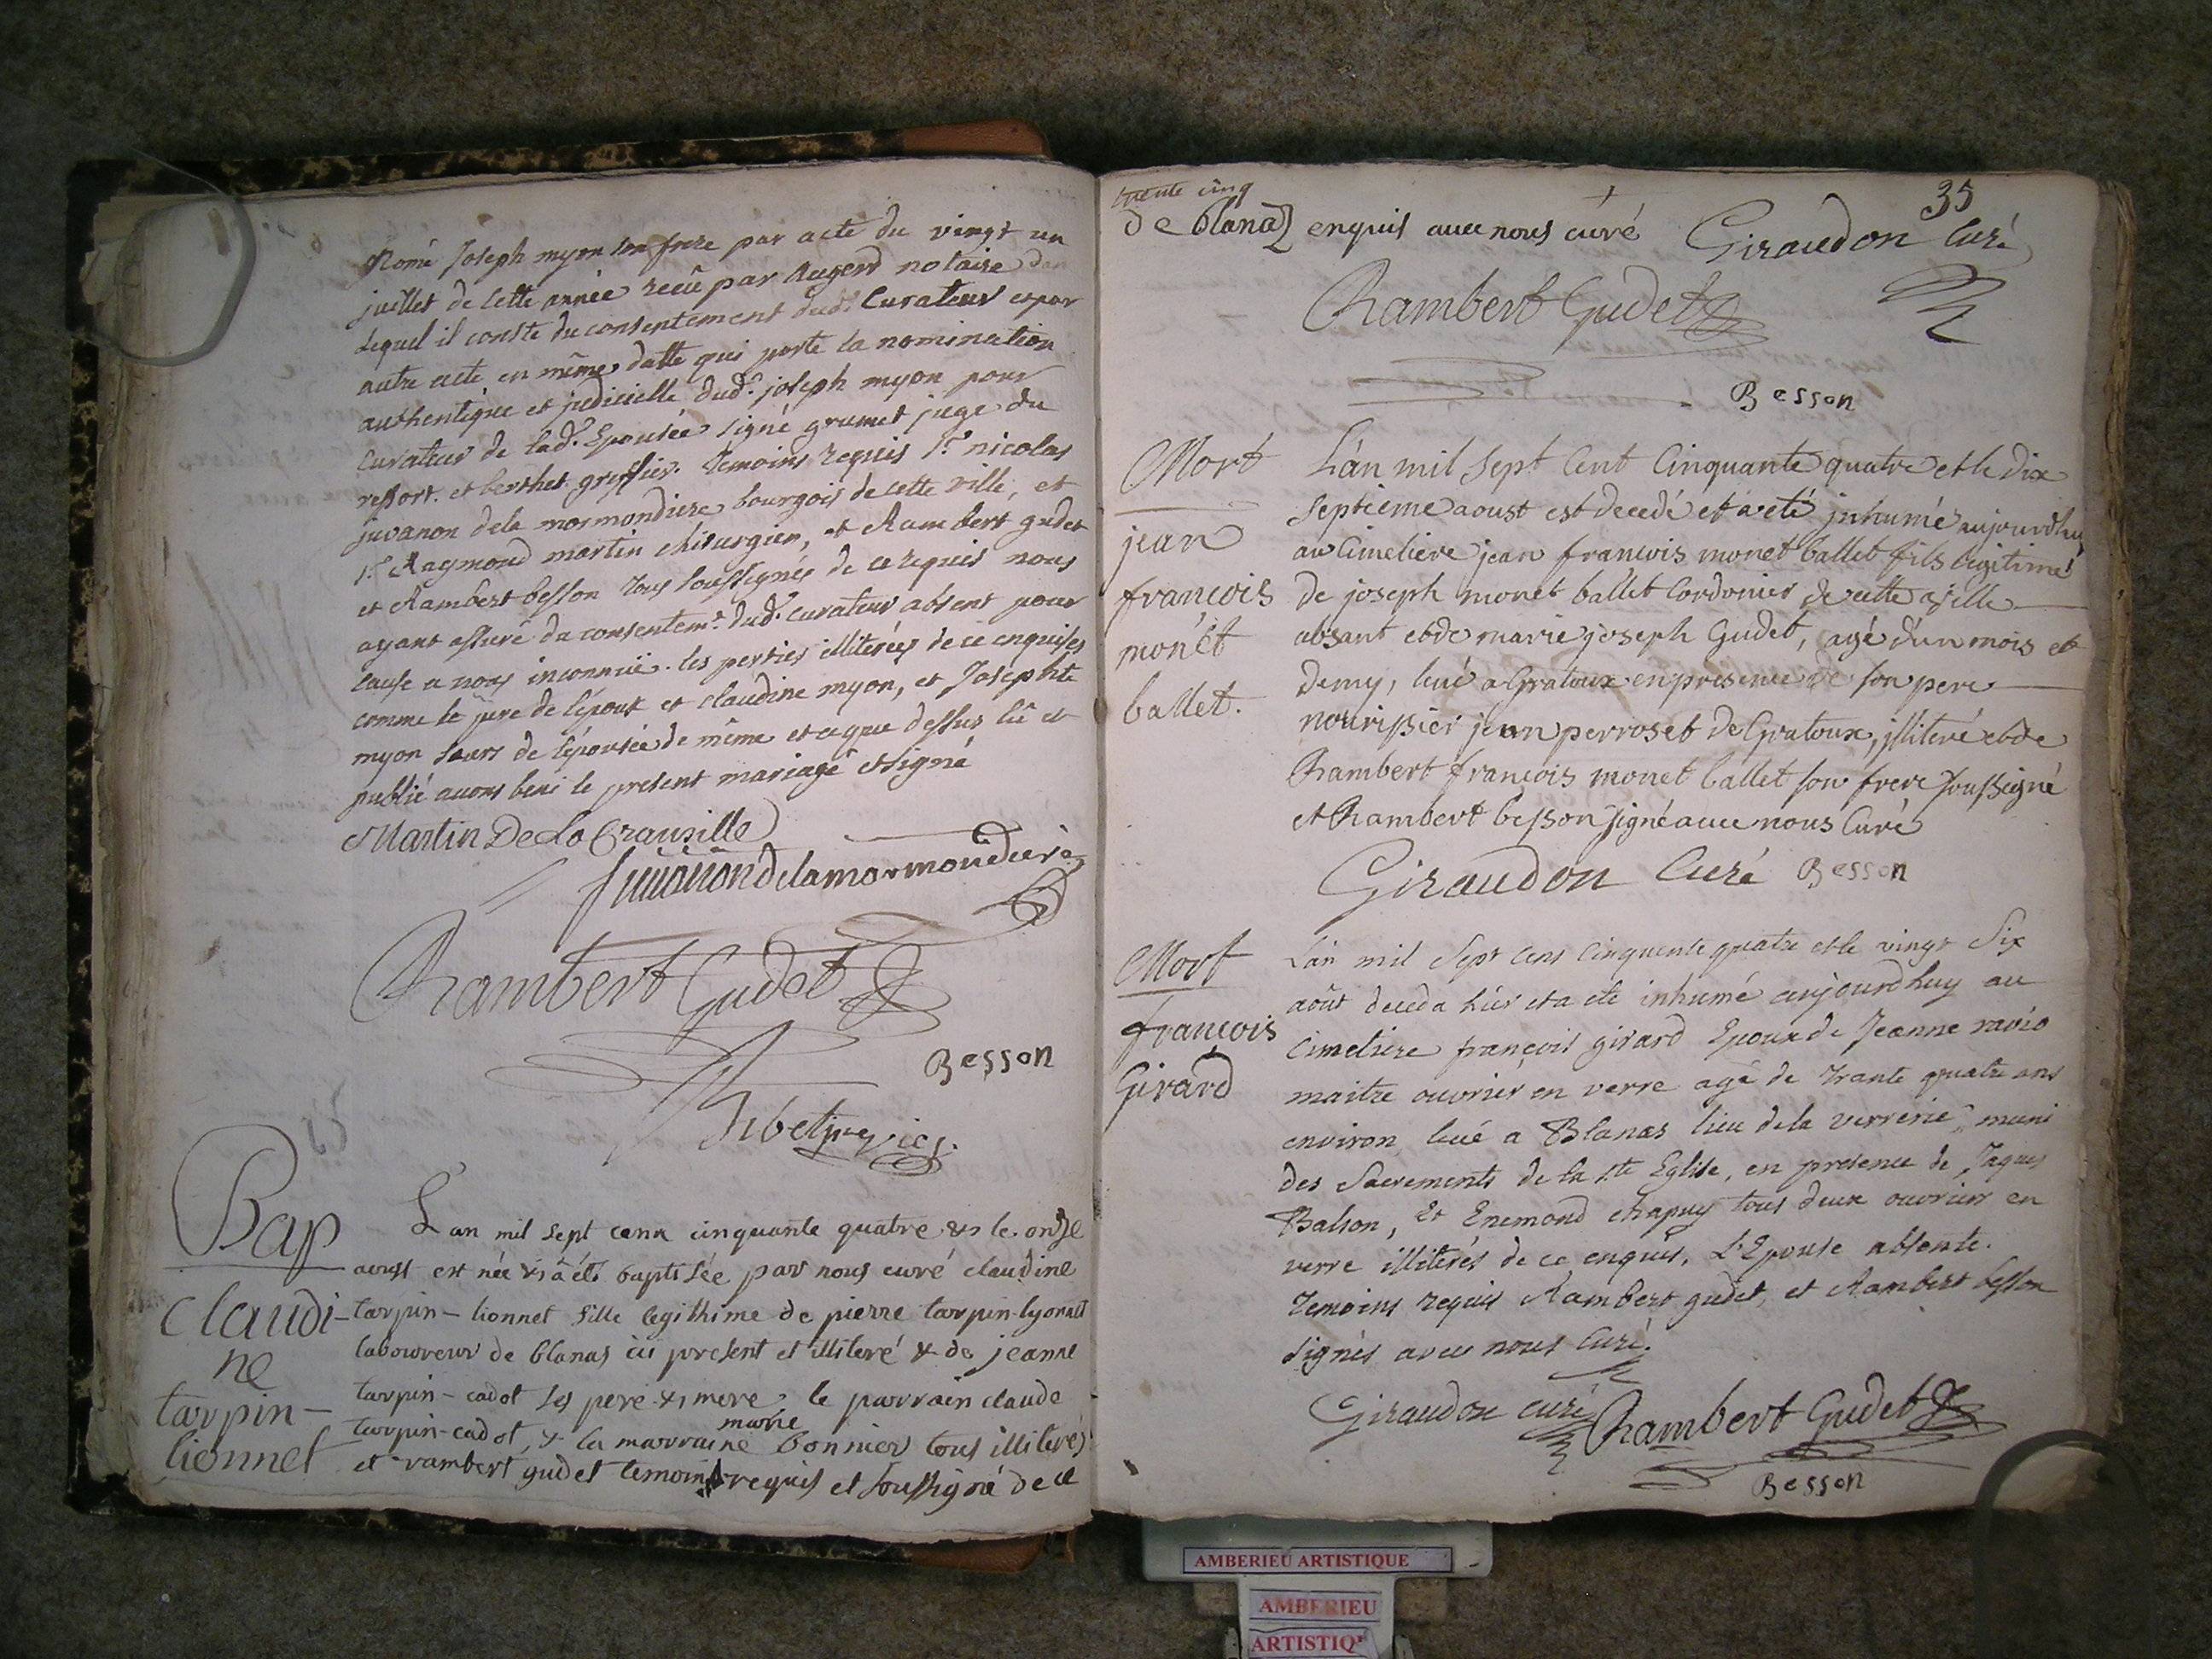 Nomé Joseph myon son frere par acte du vingt un
juillet de cette année reçû par Augerd notaise dan
lequel il conste du consentement dud.t Curateur et par
autre acte en même datte qui porte la nomination
authentique et judicielle dud.t joseph myon pour
curateur de lad.e Epousée signé grumet juge du
ressort. et berthet greffier. temoins requis S.r nicolas
juvanon dela mormondiere bourgois de cette ville, et
S.r Raymond martin chirurgien, et Rambert gudet
et Rambert besson tous soussignés de ce requis nous
ayant assuré du consentem.t dud.t curateur absent pour
cause a nous inconnuë. les parties illiterées de ce enquises
comme le pere de l'époux et claudine myon, et Josephte
myon sœurs de l'épousée de même et ce que dessus lû et
publié avons beni le present mariage et signé
Martin De la Crausille
juvanon delamormondiere
Rambert Gudet
Besson
Bap
Claudi-
ne
tarpin-
lionnet
L'an mil sept cenx cinquante quatre & le onze
aoust est née & à été baptisée par nous curé claudine
tarpin-lionnet fille legithime de pierre tarpin-lyonnet
laboureur de blanas ici present et illiteré & de jeanne
tarpin-cadot ses pere & mere, le parrain claude
tarpin-cadot, & la marraine marie bonnier tous illiterés
et rambert gudet temoins requis et soussigné de ce
trente cinq
35
de blanaz enquis avec nous curé
Giraudon Curé
Rambert Gudet
Besson
Mort
jean
francois
monet
ballet.
L'an mil sept Cent Cinquante quatre et le dix
septieme aoust est decedé et a eté inhumé aujourdhuy
au Cimetiere jean francois monet ballet fils legitimé
de joseph monet ballet Cordonier de cette ville
absant et de marie joseph Gudet, agé d'un mois et
demy, levé a Gratoux en presence de son pere
nourissier jean perroset de Gratoux, illiteré et de
Rambert francois monet ballet son frere soussigné
et Rambert besson signé avec nous Curé
Giraudon Curé Besson
Mort
françois
Girard
L'an mil Sept Cens Cinquente quatre et le vingt Six
août deceda hier et a eté inhumé aujourdhuy au
Cimetiere françois girard Epoux de Jeanne ravio
maitre ouvrier en verre agé de trante quatre ans
environ, levé a Blanas lieu dela verrerie, muni
des Sacrements de la Ste Eglise, en presence de Jaques
Balson, Et Enemond chapuy tous deux ouvrier en
verre illiterés de ce enquis. L'Epouse absente.
temoins requis Rambert gudet, et Rambert besson
signés avec nous Curé.
Giraudon curé Rambert Gudet
Besson
AMBERIEU ARTISTIQUE
AMBERIEU
ARTISTIQ